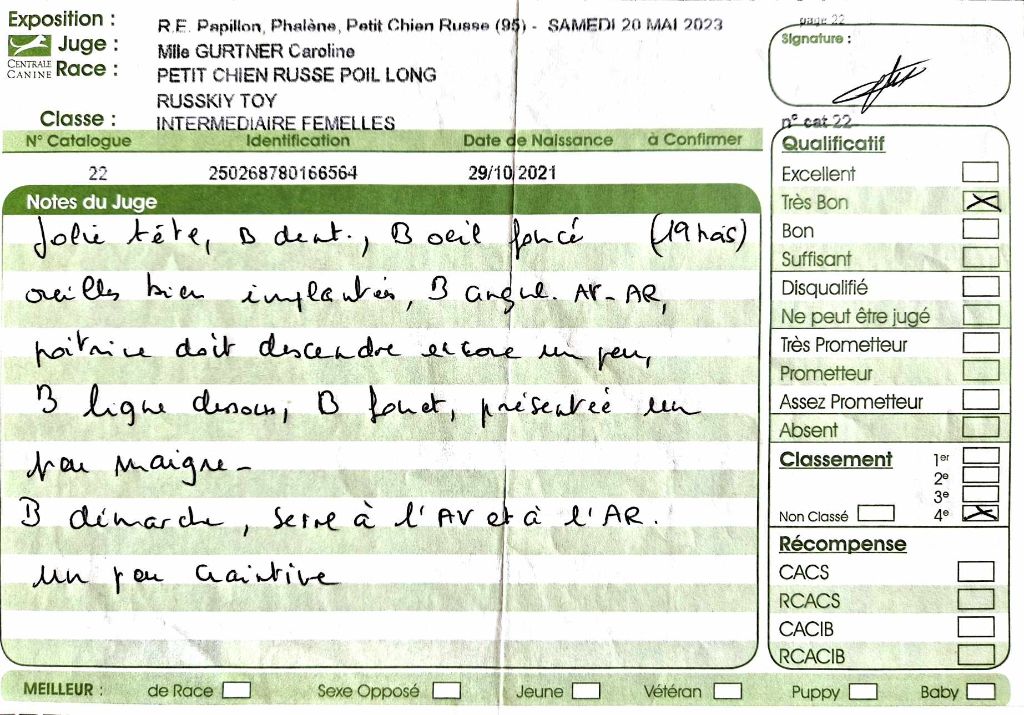 Exposition : R.E. Papillon, Phalène, Petit Chien Russe (95) - SAMEDI 20 MAI 2023
Juge : Mlle GURTNER Caroline
CENTRALE CANINE
Race : PETIT CHIEN RUSSE POIL LONG
RUSSKIY TOY
Classe : INTERMEDIAIRE FEMELLES
page 22
Signature :
n° cat 22
N° Catalogue Identification Date de Naissance à Confirmer
22 250268780166564 29/10/2021
Notes du Juge
Jolie tête, B dent., B oeil foncé (19 mois)
oreilles bien implantées, B angul. AV-AR,
poitrine doit descendre encore un peu,
B ligne dessous, B fouet, présentée un
peu maigre -
B démarche, serre à l'AV et à l'AR.
un peu craintive
Qualificatif
Excellent
Très Bon
Bon
Suffisant
Disqualifié
Ne peut être jugé
Très Prometteur
Prometteur
Assez Prometteur
Absent
Classement 1er
2e
3e
Non Classé 4e
Récompense
CACS
RCACS
CACIB
RCACIB
MEILLEUR : de Race Sexe Opposé Jeune Vétéran Puppy Baby